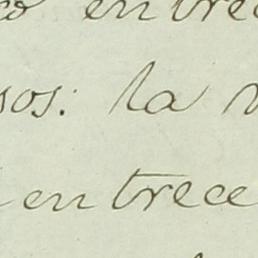 entrec
sos: la
entrece